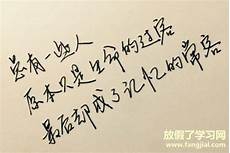 总有一些人
原本只是生命的过客
最后却成了记忆的常客
放假了学习网
www.fangjial.com